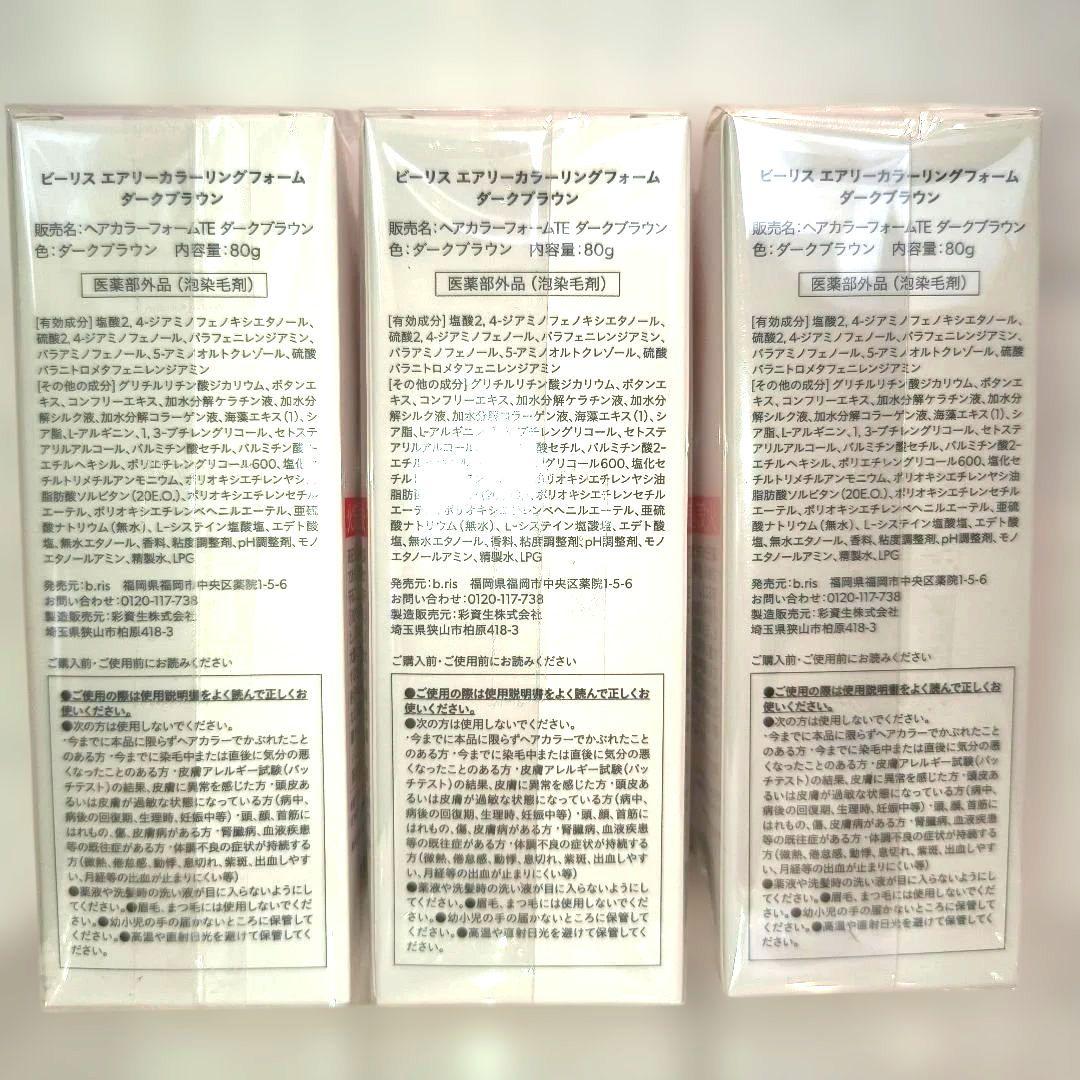 ビーリス エアリーカラーリングフォーム
ダークブラウン
販売名:ヘアカラーフォームTE ダークブラウン
色:ダークブラウン 内容量:80g
医薬部外品(泡染毛剤)
[有効成分]塩酸2, 4-ジアミノフェノキシエタノール、
硫酸2, 4-ジアミノフェノール、パラフェニレンジアミン、
パラアミノフェノール、5-アミノオルトクレゾール、硫酸
パラニトロメタフェニレンジアミン
[その他の成分]グリチルリチン酸ジカリウム、ボタンエ
キス、コンフリーエキス、加水分解ケラチン液、加水分
解シルク液、加水分解コラーゲン液、海藻エキス(1)、シ
ア脂、L-アルギニン、1, 3-ブチレングリコール、セトステ
アリルアルコール、パルミチン酸セチル、パルミチン酸2-
エチルヘキシル、ポリエチレングリコール600、塩化
チルトリメチルアンモニウム、ポリオキシエチレンヤシ
脂肪酸ソルビタン(20E.O.)、ポリオキシエチレンセチル
エーテル、ポリオキシエチレンベヘニルエーテル、亜硫
酸ナトリウム(無水)、L-システイン塩酸塩、エデト酸
塩、無水エタノール、香料、粘度調整剤、pH調整剤、モノ
エタノールアミン、精製水、LPG
発売元:b.ris 福岡県福岡市中央区薬院1-5-6
お問い合わせ:0120-117-738
製造販売元:彩資生株式会社
埼玉県狭山市柏原418-3
ご購入前・ご使用前にお読みください
●ご使用の際は使用説明書をよく読んで正しくお
使いください。
●次の方は使用しないでください。
・今までに本品に限らずヘアカラーでかぶれたこと
のある方・今までに染毛中または直後に気分の悪
くなったことのある方・皮膚アレルギー試験(パッ
チテスト)の結果、皮膚に異常を感じた方・頭皮あ
るいは皮膚が過敏な状態になっている方(病中、
病後の回復期、生理時、妊娠中等)・頭、顔、首筋に
はれもの、傷、皮膚病がある方・腎臓病、血液疾患
等の既往症がある方・体調不良の症状が持続する
方(微熱、倦怠感、動悸、息切れ、紫斑、出血しやす
い、月経等の出血が止まりにくい等)
●薬液や洗髪時の洗い液が目に入らないようにし
てください。●眉毛、まつ毛には使用しないでくだ
さい。●幼小児の手の届かないところに保管して
ください。●高温や直射日光を避けて保管してく
ださい。
ビーリス エアリーカラーリングフォーム
ダークブラウン
販売名:ヘアカラーフォームTE ダークブラウン
色:ダークブラウン 内容量:80g
医薬部外品(泡染毛剤)
[有効成分]塩酸2, 4-ジアミノフェノキシエタノール、
硫酸2, 4-ジアミノフェノール、パラフェニレンジアミン、
パラアミノフェノール、5-アミノオルトクレゾール、硫酸
パラニトロメタフェニレンジアミン
[その他の成分]グリチルリチン酸ジカリウム、ボタンエ
キス、コンフリーエキス、加水分解ケラチン液、加水分
解シルク液、加水分解コラーゲン液、海藻エキス(1)、シ
ア脂、L-アルギニ ブチレングリコール、セトステ
アリルアルコール、 酸セチル、パルミチン酸2-
エチル グリコール600、塩化セ
チルトリメ リオキシエチレンヤシ油
脂肪酸 ポリオキシエチレンセチル
エーテル、ポリオキシエチレンベヘニルエーテル、亜硫
酸ナトリウム(無水)、L-システイン塩酸塩、エデト酸
塩、無水エタノール、香料、粘度調整剤、pH調整剤、モノ
エタノールアミン、精製水、LPG
発売元:b.ris 福岡県福岡市中央区薬院1-5-6
お問い合わせ:0120-117-738
製造販売元:彩資生株式会社
埼玉県狭山市柏原418-3
ご購入前・ご使用前にお読みください
●ご使用の際は使用説明書をよく読んで正しくお
使いください。
●次の方は使用しないでください。
・今までに本品に限らずヘアカラーでかぶれたこと
のある方・今までに染毛中または直後に気分の悪
くなったことのある方・皮膚アレルギー試験(パッ
チテスト)の結果、皮膚に異常を感じた方・頭皮あ
るいは皮膚が過敏な状態になっている方(病中、
病後の回復期、生理時、妊娠中等)・頭、顔、首筋に
はれもの、傷、皮膚病がある方・腎臓病、血液疾患
等の既往症がある方・体調不良の症状が持続する
方(微熱、倦怠感、動悸、息切れ、紫斑、出血しやす
い、月経等の出血が止まりにくい等)
●薬液や洗髪時の洗い液が目に入らないようにし
てください。●眉毛、まつ毛には使用しないでくだ
さい。●幼小児の手の届かないところに保管して
ください。●高温や直射日光を避けて保管してく
ださい。
ビーリス エアリーカラーリングフォーム
ダークブラウン
販売名:ヘアカラーフォームTE ダークブラウン
色:ダークブラウン 内容量:80g
医薬部外品(泡染毛剤)
[有効成分]塩酸2, 4-ジアミノフェノキシエタノール、
硫酸2, 4-ジアミノフェノール、パラフェニレンジアミン、
パラアミノフェノール、5-アミノオルトクレゾール、硫酸
パラニトロメタフェニレンジアミン
[その他の成分]グリチルリチン酸ジカリウム、ボタンエ
キス、コンフリーエキス、加水分解ケラチン液、加水分
解シルク液、加水分解コラーゲン液、海藻エキス(1)、シ
ア脂、L-アルギニン、1, 3-ブチレングリコール、セトステ
アリルアルコール、パルミチン酸セチル、パルミチン酸2-
エチルヘキシル、ポリエチレングリコール600、塩化セ
チルトリメチルアンモニウム、ポリオキシエチレンヤシ油
脂肪酸ソルビタン(20E.O.)、ポリオキシエチレンセチル
エーテル、ポリオキシエチレンベヘニルエーテル、亜硫
酸ナトリウム(無水)、L-システイン塩酸塩、エデト酸
塩、無水エタノール、香料、粘度調整剤、pH調整剤、モノ
エタノールアミン、精製水、LPG
発売元:b.ris 福岡県福岡市中央区薬院1-5-6
お問い合わせ:0120-117-738
製造販売元:彩資生株式会社
埼玉県狭山市柏原418-3
ご購入前・ご使用前にお読みください
●ご使用の際は使用説明書をよく読んで正しくお
使いください。
●次の方は使用しないでください。
・今までに本品に限らずヘアカラーでかぶれたこと
のある方・今までに染毛中または直後に気分の悪
くなったことのある方・皮膚アレルギー試験(パッ
チテスト)の結果、皮膚に異常を感じた方・頭皮あ
るいは皮膚が過敏な状態になっている方(病中、
病後の回復期、生理時、妊娠中等)・頭、顔、首筋に
はれもの、傷、皮膚病がある方・腎臓病、血液疾患
等の既往症がある方・体調不良の症状が持続する
方(微熱、倦怠感、動悸、息切れ、紫斑、出血しやす
い、月経等の出血が止まりにくい等)
●薬液や洗髪時の洗い液が目に入らないようにし
てください。●眉毛、まつ毛には使用しないでくだ
さい。●幼小児の手の届かないところに保管して
ください。●高温や直射日光を避けて保管してく
ださい。